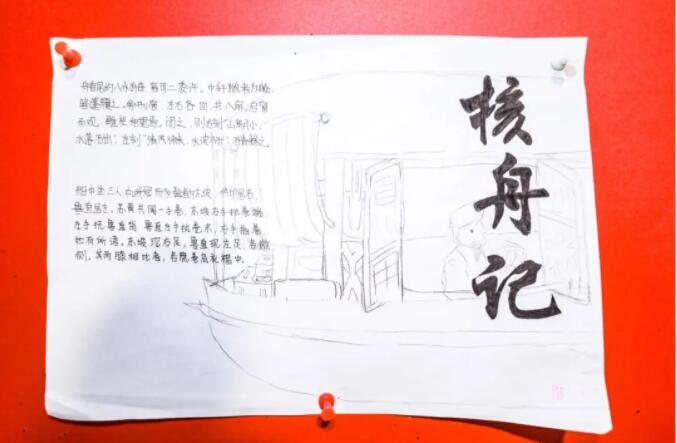 核舟记
舟首尾长约八分有奇,高可二黍许。中轩敞者为舱,
箬篷覆之。旁开小窗,左右各四,共八扇。启窗
而观,雕栏相望焉。闭之,则右刻“山高月小,
水落石出”,左刻“清风徐来,水波不兴”,石青糁之。
船头坐三人,中峨冠而多髯者为东坡,佛印居右,
鲁直居左。苏黄共阅一手卷。东坡右手执卷端,
左手抚鲁直背。鲁直左手执卷末,右手指卷,
如有所语。东坡现右足,鲁直现左足,各微
侧,其两膝相比者,各隐卷底衣褶中。